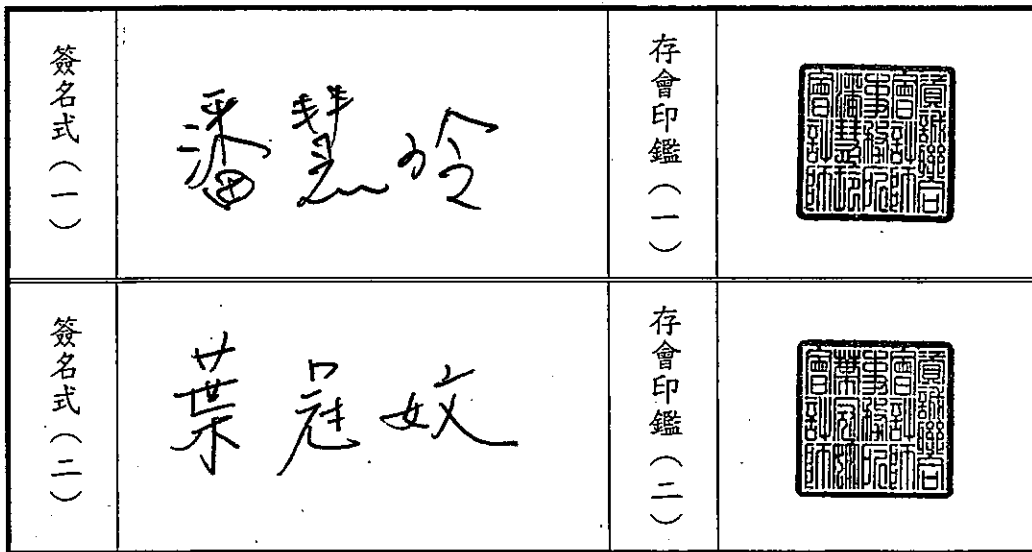 簽名式（一）
潘慧玲
存會印鑑（一）
資誠聯合
會計師
事務所
潘慧玲
會計師
簽名式（二）
葉冠妏
存會印鑑（二）
資誠聯合
會計師
事務所
葉冠妏
會計師